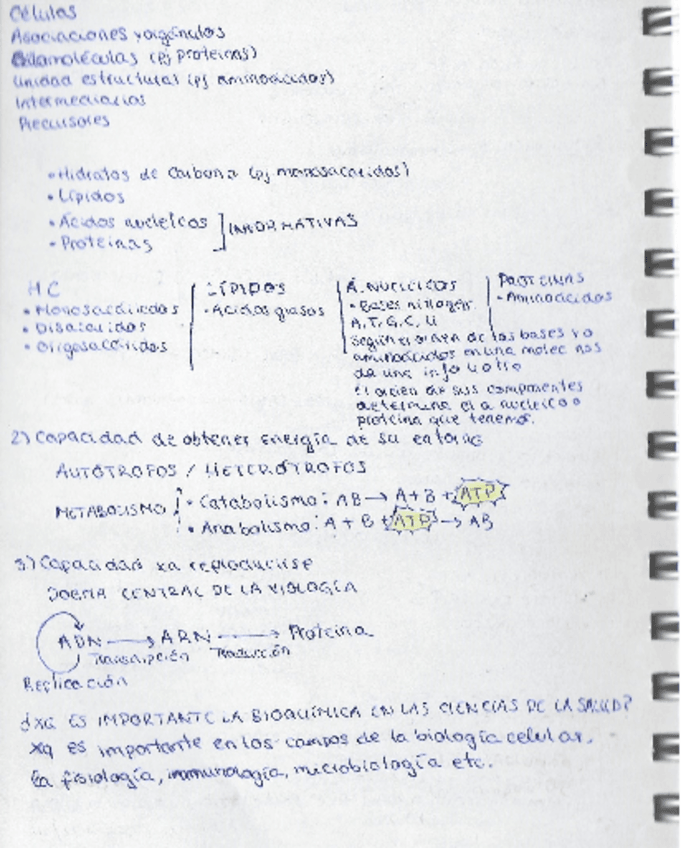 Células
Asociaciones y orgánulos
Biomoléculas (pj proteínas)
Unidad estructural (pj aminoácidos)
Intermediarios
Precursores
• Hidratos de Carbono (pj monosacáridos)
• Lípidos
• Ácidos nucleicos
• Proteínas
INFORMATIVAS
HC
• Monosacáridos
• Disacáridos
• Oligosacáridos
LÍPIDOS
• Ácidos grasos
Á. NUCLEICOS
• Bases nitrogen.
A, T, G, C, U
según el orden de las bases y o
aminoácidos en una molec nos
da una info u otra
El orden de sus componentes
determina el a nucleico o
proteína que tenemos.
PROTEÍNAS
• Aminoácidos
2) Capacidad de obtener energía de su entorno
AUTÓTROFOS / HETERÓTROFOS
METABOLISMO
• Catabolismo: AB → A + B + ATP
• Anabolismo: A + B + ATP → AB
3) Capacidad xa reproducirse
DOGMA CENTRAL DE LA BIOLOGÍA
ADN → ARN → Proteína
Transcripción Traducción
Replicación
¿XQ ES IMPORTANTE LA BIOQUÍMICA EN LAS CIENCIAS DE LA SALUD?
Xq es importante en los campos de la biología celular,
la fisiología, inmunología, microbiología etc.